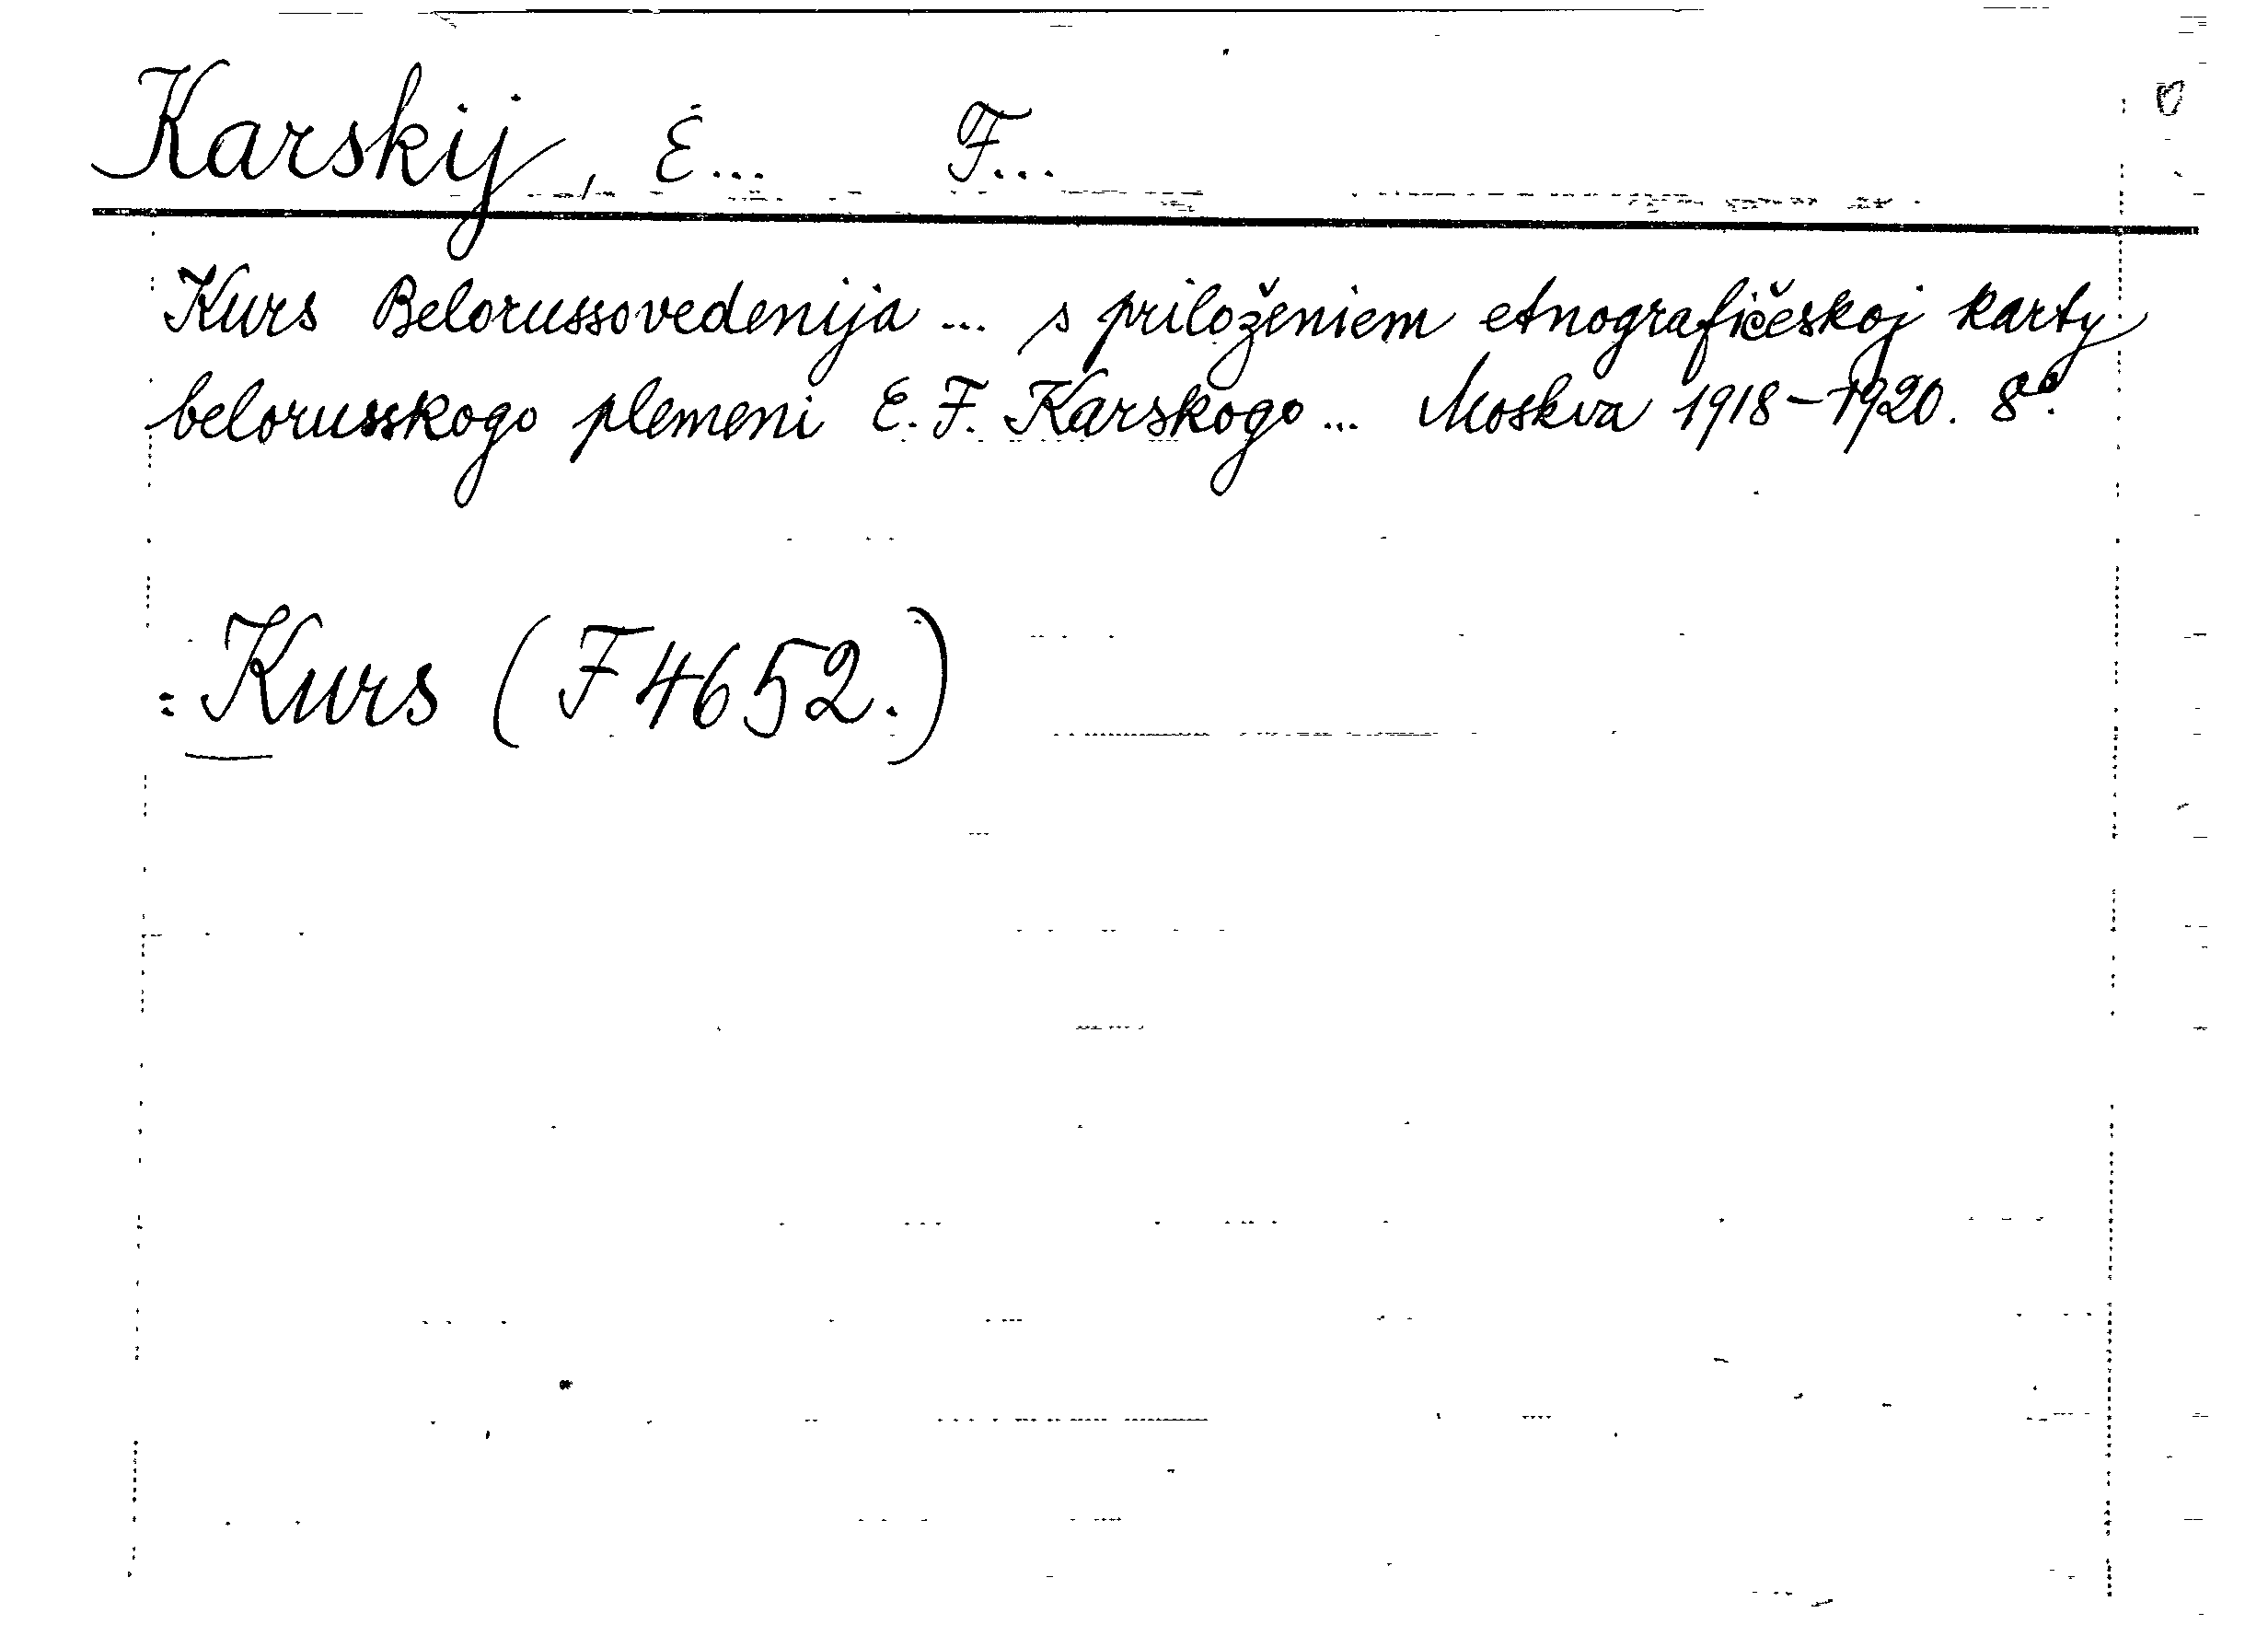 Karskij, E... F...
Kurs Belorussovedenija ... s priloženiem etnografičeskoj karty
belorusskogo plemeni E. F. Karskogo ... Moskva 1918-1920. 8°.
: Kurs (F 4652.)